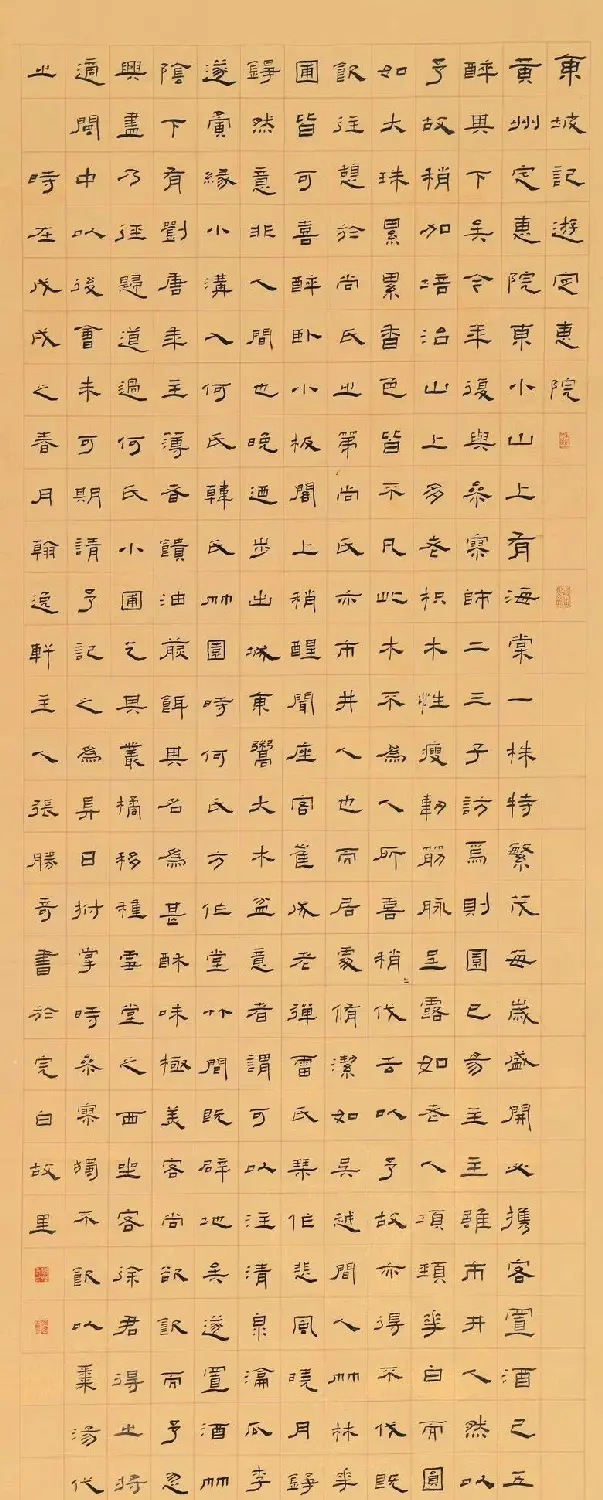 東坡記遊定惠院
黄州定惠院東小山上有海棠一株特繁茂每歲盛開必攜客置酒已五
醉其下矣今年復與參寥師二三子訪焉則園已易主主雖市井人然以
予故稍加培治山上多老枳木性瘦韌筋脉呈露如老人項頸華白而圓
如大珠累累香色皆不凡此木不為人所喜稍〻伐去以予故亦得不伐既
飲往憩於尚氏之第尚氏亦市井人也而居處修潔如吳越間人竹林華
圃皆可喜醉卧小板閣上稍醒聞座客崔成老彈雷氏琴作悲風曉月錚
錚然意非人間也晚迺步出城東鬻大木盆意者謂可以注清泉瀹瓜李
遂夤緣小溝入何氏韓氏竹園時何氏方作堂竹間既辟地矣遂置酒竹
陰下有劉唐年主簿者饋油煎餌其名為甚酥味極美客尚欲飲而予忽
興盡乃徑歸道過何氏小圃乞其叢橘移種雪堂之西坐客徐君得之將
適閩中以後會未可期請予記之為異日拊掌時參寥獨不飲以棗湯代
之時在戊戌之春月翰逸軒主人張勝奇書於完白故里